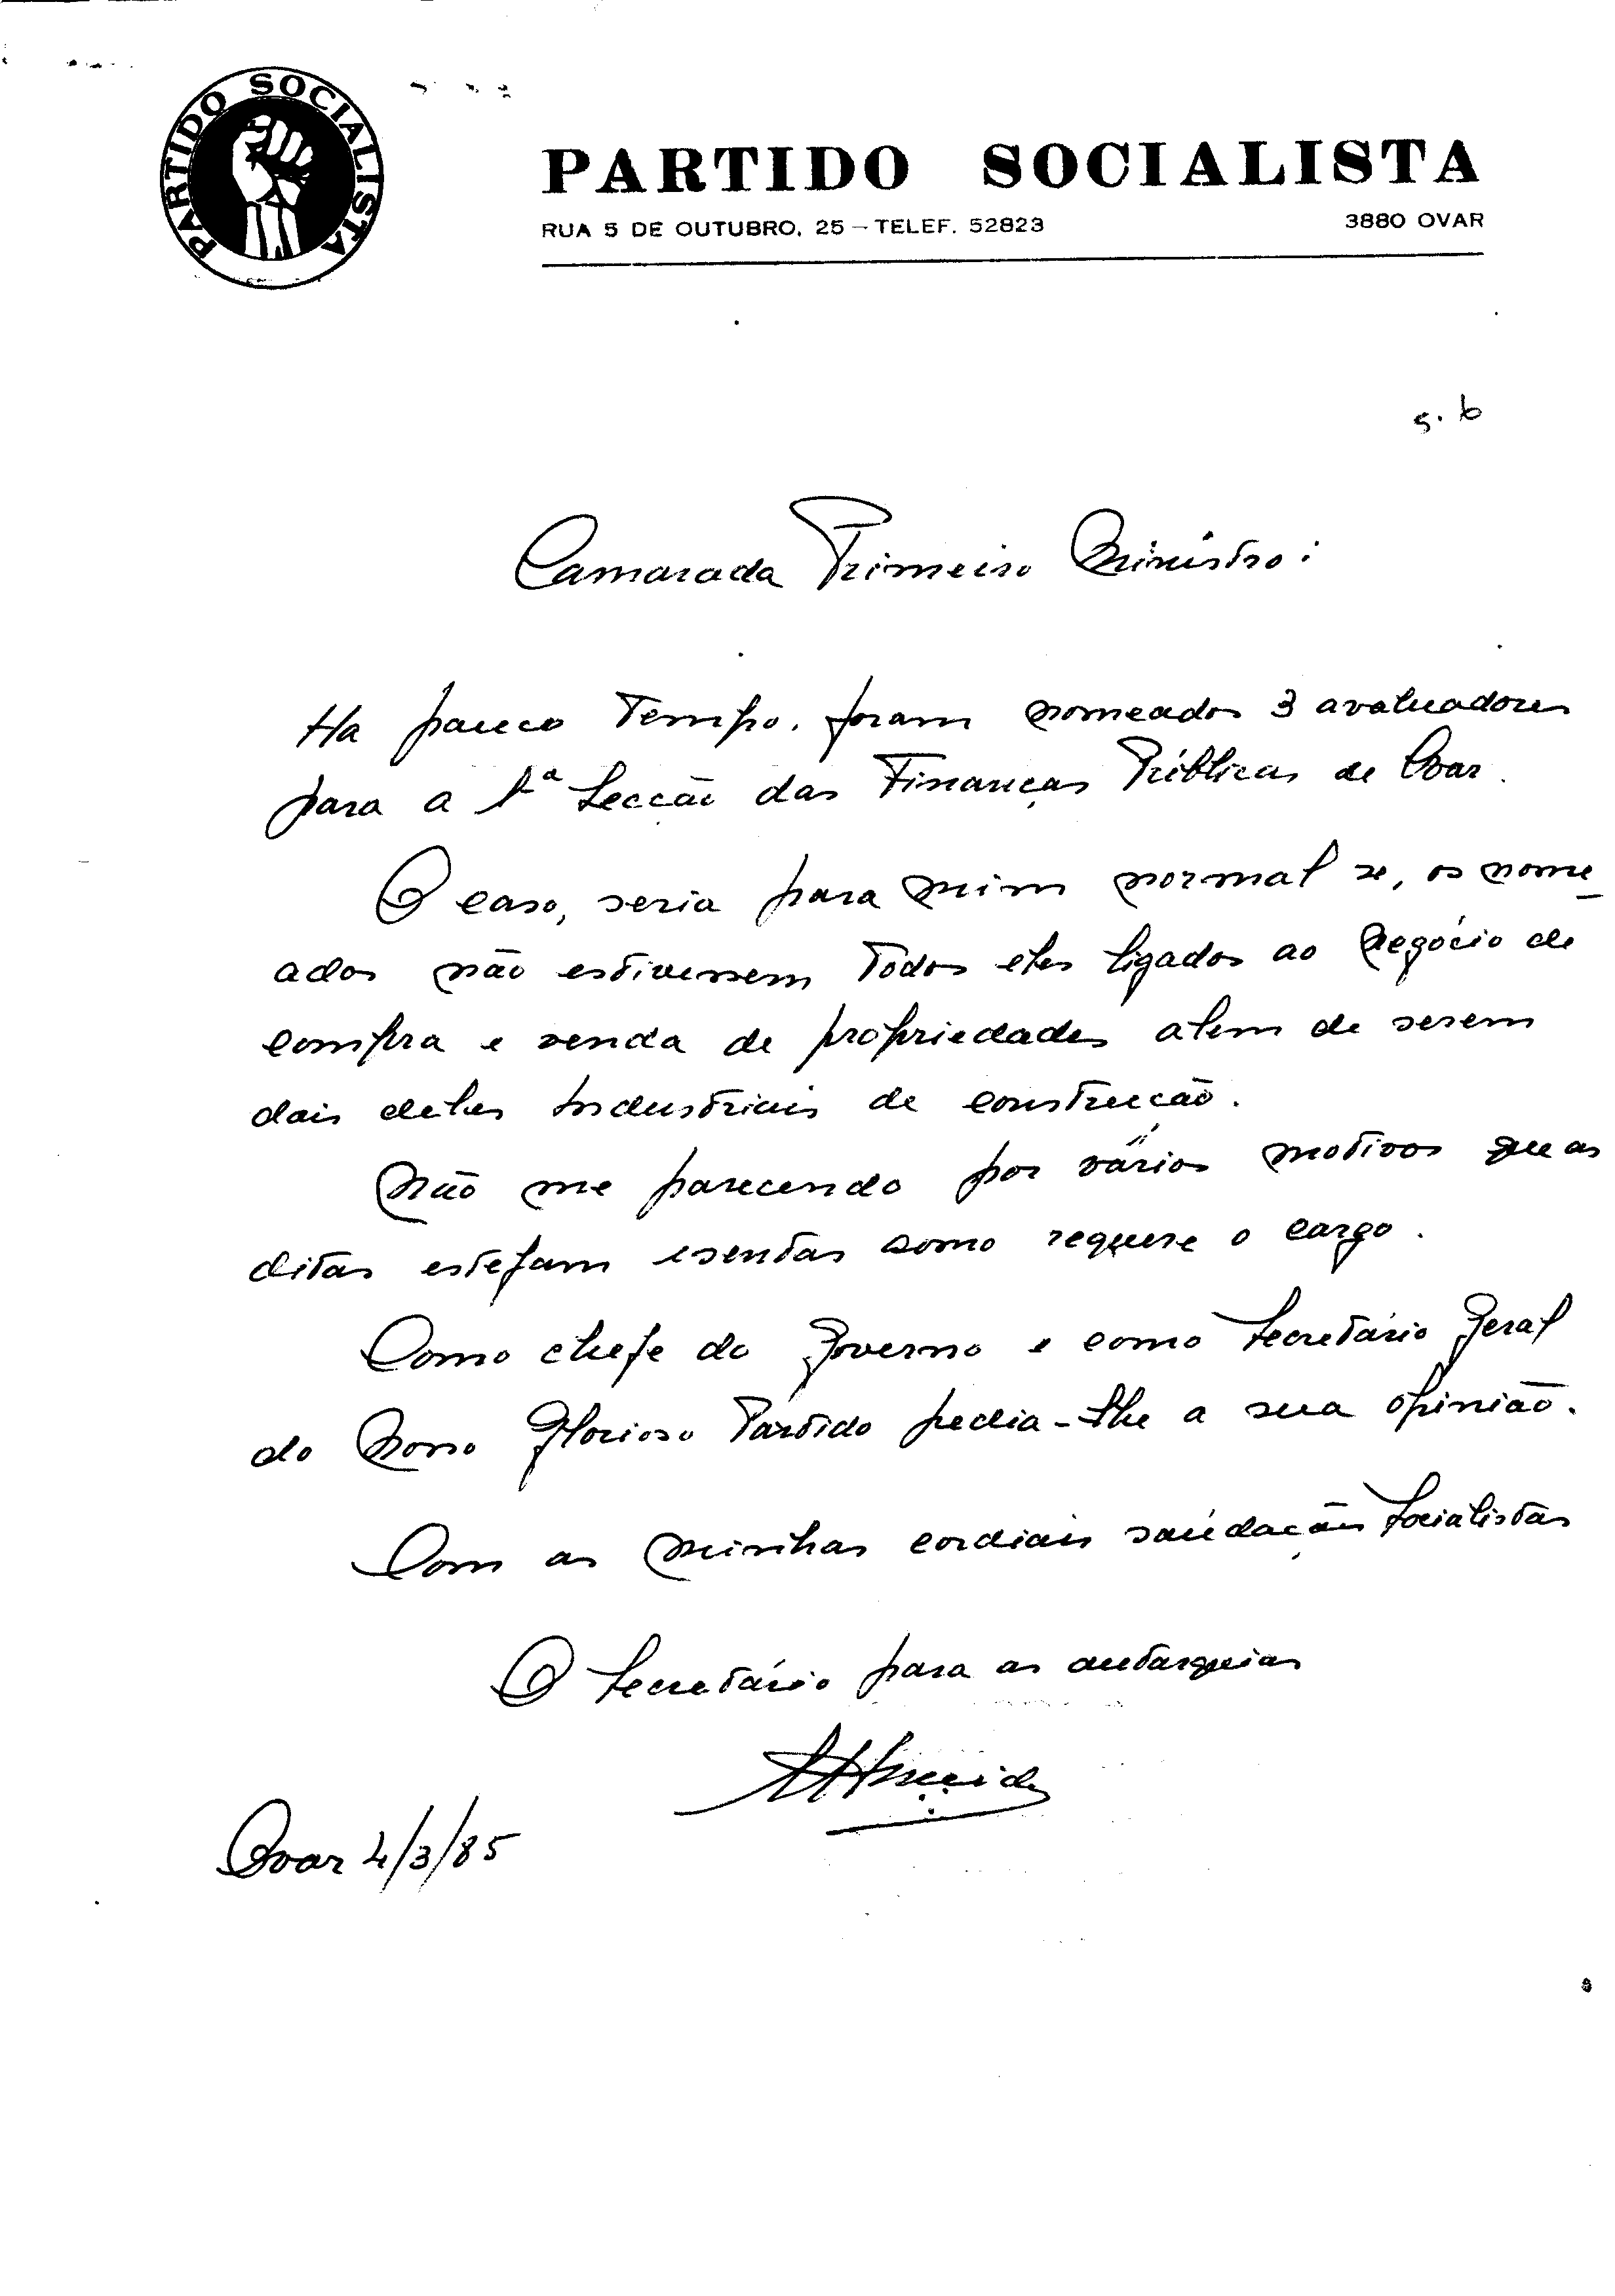 PARTIDO SOCIALISTA
PARTIDO SOCIALISTA
RUA 5 DE OUTUBRO, 25 – TELEF. 52823 3880 OVAR
Camarada Primeiro Ministro:
Ha pouco tempo, foram nomeados 3 avaluadores
para a 1ª Secção das Finanças Públicas de Ovar.
O caso, seria para mim normal se, os nome_
ados não estivessem todos eles ligados ao negócio de
compra e venda de propriedades alem de serem
dois deles Industriais de construcção.
Não me parecendo por vários motivos que as
ditas estejam isentas como requere o cargo.
Como chefe do Governo e como Secretário Geral
do Nosso Glorioso Partido pedia-lhe a sua opinião.
Com as minhas cordiais saúdações Socialistas
O Secretário para as autarquias
AAlmeida
Ovar 4/3/85